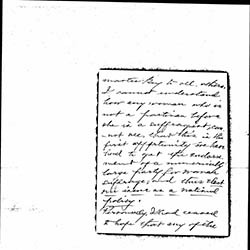 master key to all others.
I cannot understand
how any woman who is
not a partisan before
she is a suffragist, can
not see, that this is the
first opportunity we have
had to get the endorse
ment of a
large party for woman
suffrage, and thus
our issue as a national
policy.
Personally, I had ceased
to hope that any of the